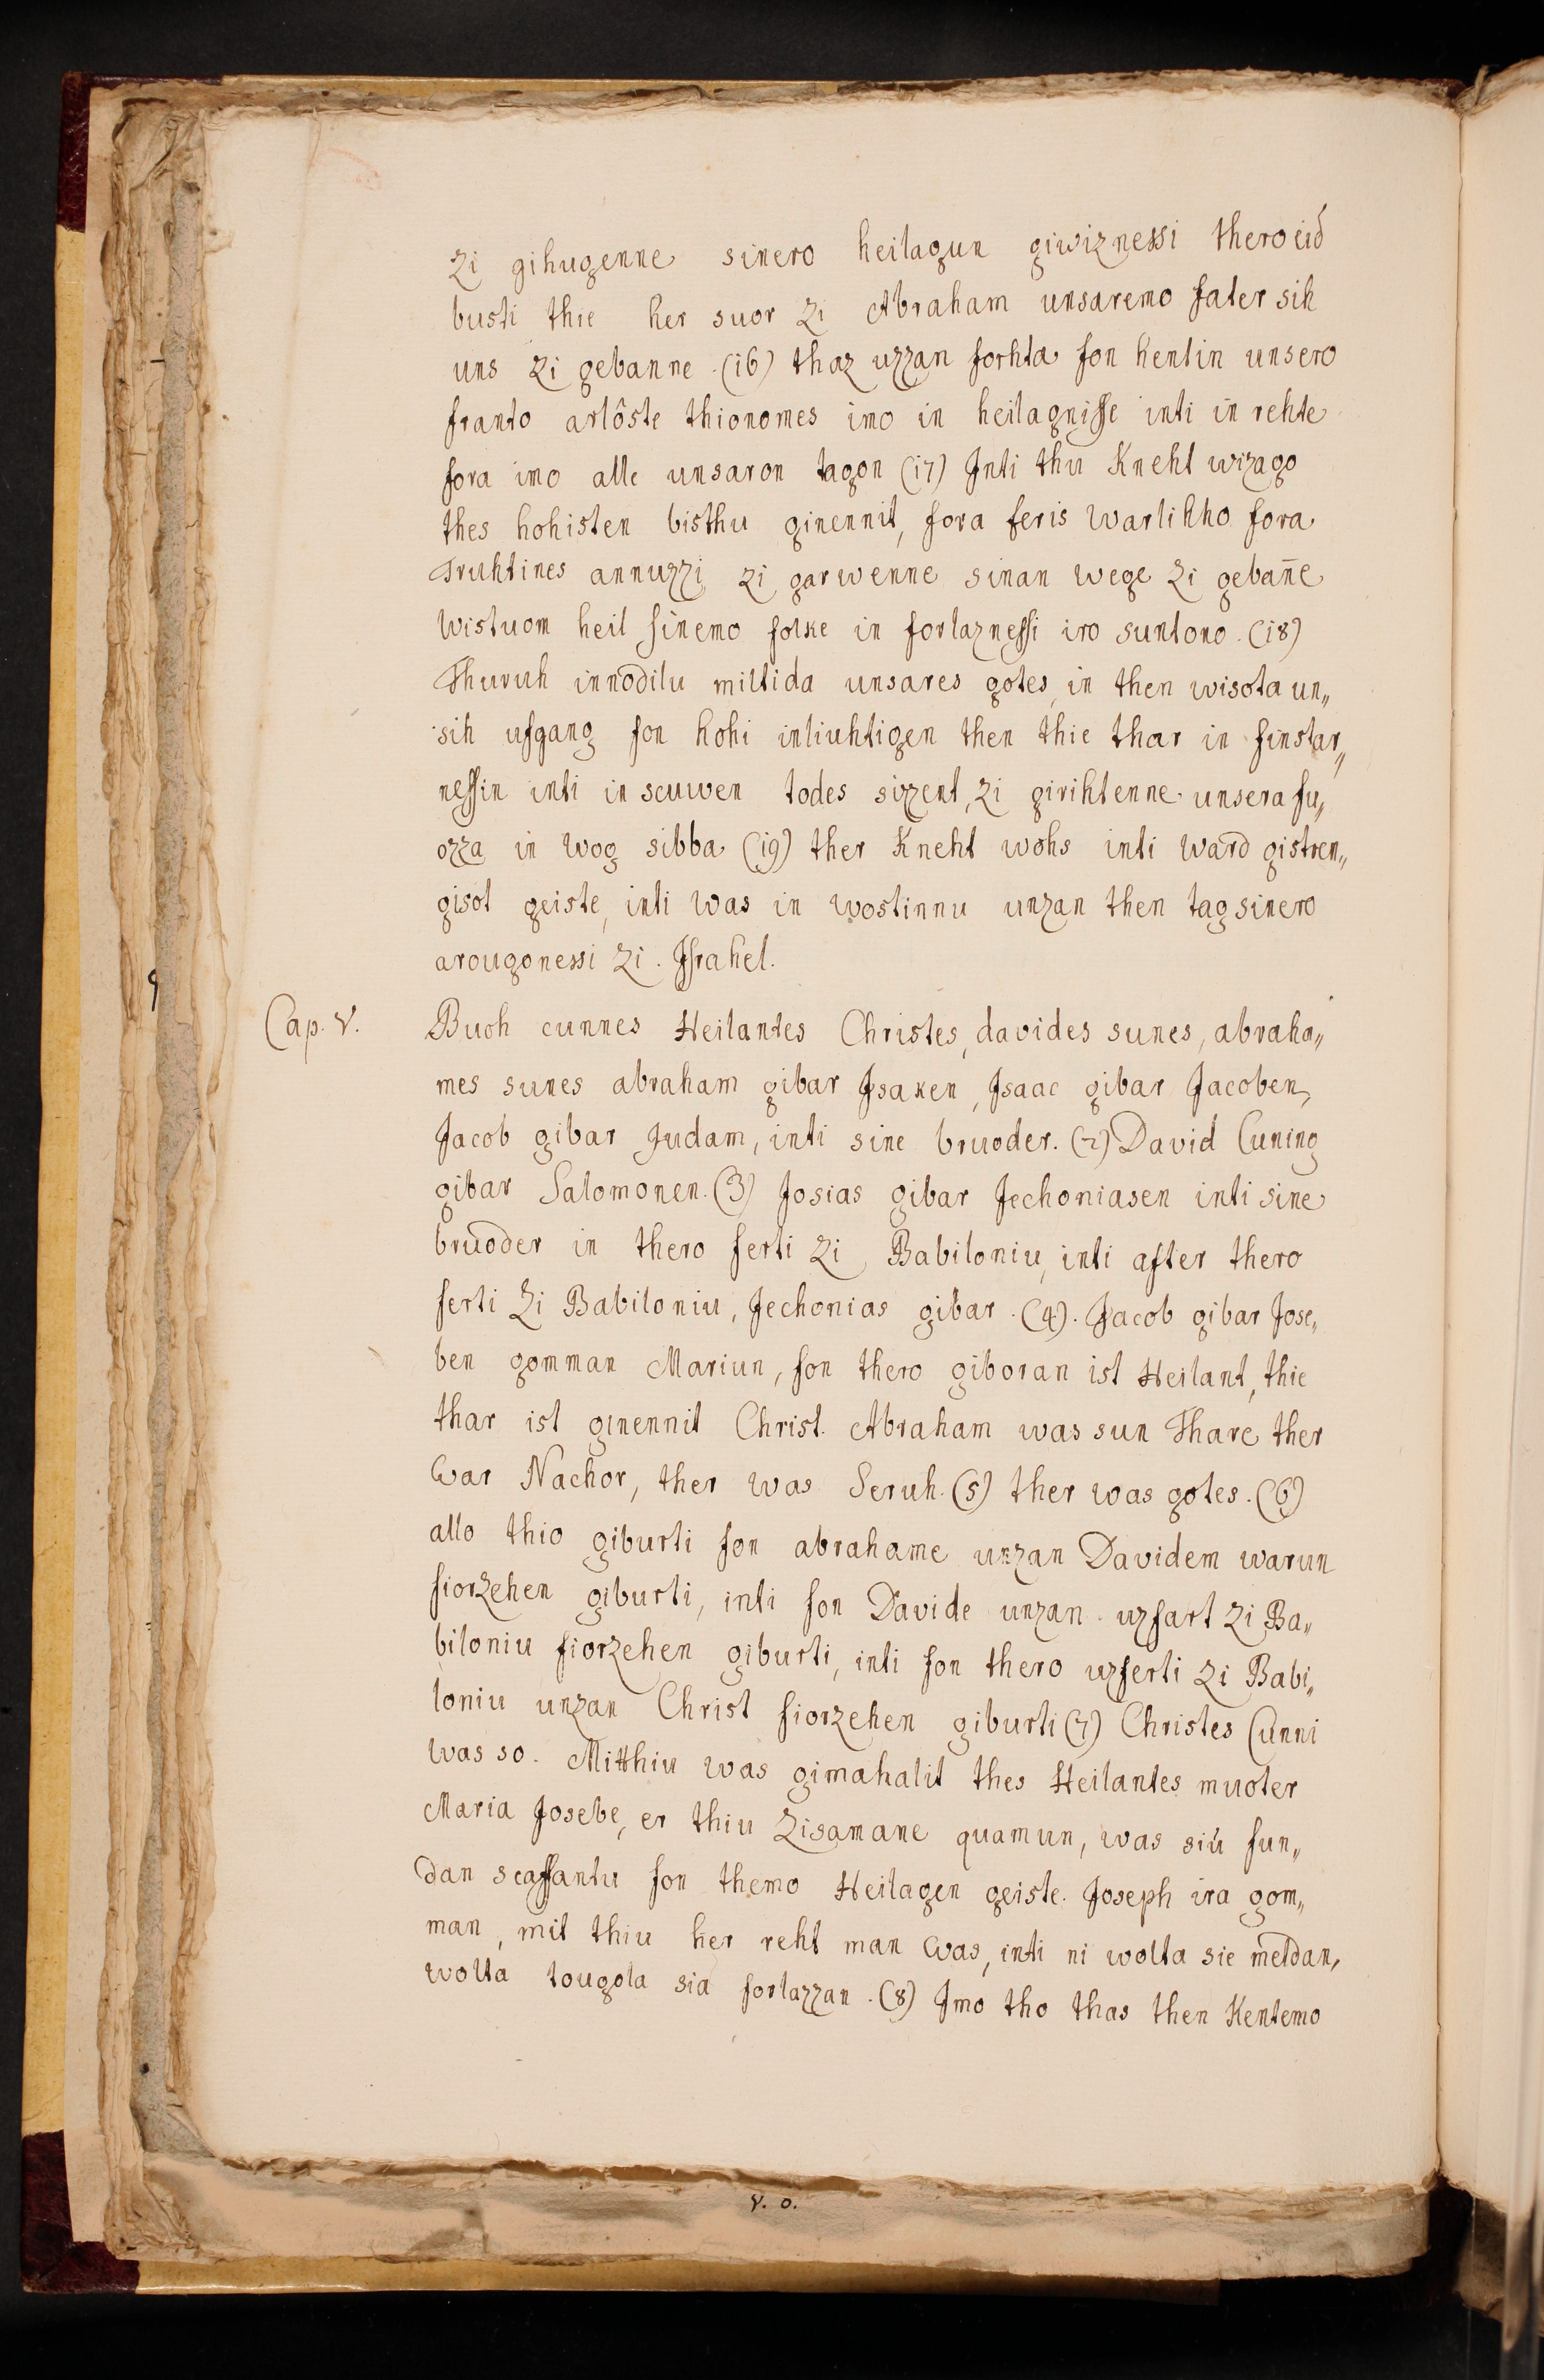 zi gihugenne sinero heilagun giwiznessi thero eid
busti thie her suor zi Abraham unsaremo fater sih
uns zi gebanne. (16) thaz uzzan forhta fon hentin unsero
franto arlôste thionomes imo in heilagnisse inti in rehte
fora imo alle unsaron tagon (17) Inti thu Kneht wizago
thes hohisten bisthu ginennit, fora feris warlihho fora
Truhtines annuzzi zi garwenne sinan wege zi gebañe
wistuom heil sinemo folke in forlaznessi iro suntono. (18)
Thuruh innodilu miltida unsares gotes, in then wisota un„
sih ufgang fon hohi inliuhtigen then thie thar in finstar„
nessin inti in scuwen todes sizzent, zi girihtenne unsera fu„
ozza in wog sibba (19) ther Kneht wohs inti ward gistren„
gisot geiste, inti was in wostinnu unzan then tag sinero
arougonessi zi. Israhel.
Cap. V. Buoh cunnes Heilantes Christes, davides sunes, abraha„
mes sunes abraham gibar Isaken, Isaac gibar Jacoben,
Jacob gibar Judam, inti sine bruoder. (2) David Cuning
gibar Salomonen. (3) Josias gibar Jechoniasen inti sine
bruoder in thero ferti zi Babiloniu, inti after thero
ferti zi Babiloniu, Jechonias gibar. (4). Jacob gibar Jose„
ben gomman Mariun, fon thero giboran ist Heilant, thie
thar ist ginennit Christ. Abraham was sun Thare ther
war Nachor, ther was Seruh. (5) ther was gotes. (6)
allo thio giburti fon abrahame unzan Davidem warun
fiorzehen giburti, inti fon Davide unzan uzfart zi Ba„
biloniu fiorzehen giburti, inti fon thero uzferti zi Babi„
loniu unzan Christ fiorzehen giburti (7) Christes Cunni
was so. Mitthiu was gimahalit thes Heilantes muoter
Maria Josebe, er thiu zisamane quamun, was siu fun„
dan scaffantu fon themo Heilagen geiste. Joseph ira gom„
man, mit thiu her reht man was, inti ni wolta sie meldan,
wolta tougola sia forlazzan. (8) Imo tho thas then Kentemo
V. o.